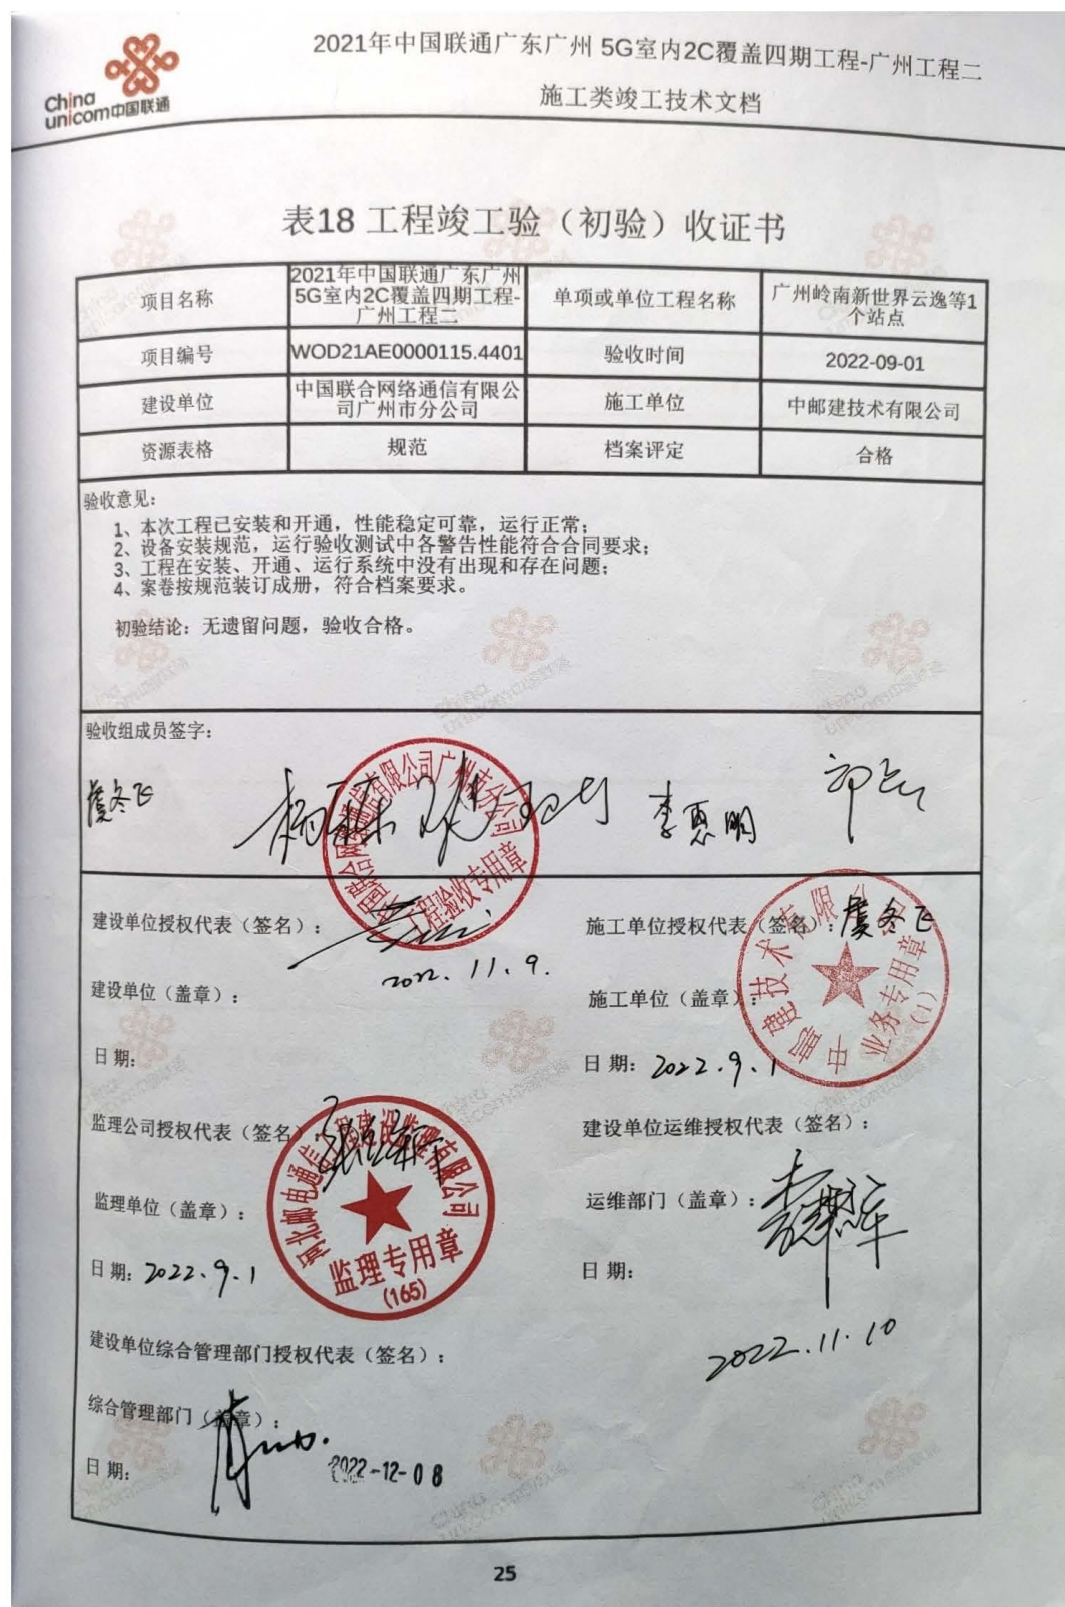 China
unicom中国联通
2021年中国联通广东广州 5G室内2C覆盖四期工程-广州工程二
施工类竣工技术文档
表18 工程竣工验（初验）收证书
项目名称
2021年中国联通广东广州
5G室内2C覆盖四期工程-
广州工程二
单项或单位工程名称
广州岭南新世界云逸等1
个站点
项目编号
WOD21AE0000115.4401
验收时间
2022-09-01
建设单位
中国联合网络通信有限公
司广州市分公司
施工单位
中邮建技术有限公司
资源表格
规范
档案评定
合格
验收意见：
1、本次工程已安装和开通，性能稳定可靠，运行正常；
2、设备安装规范，运行验收测试中各警告性能符合合同要求；
3、工程在安装、开通、运行系统中没有出现和存在问题；
4、案卷按规范装订成册，符合档案要求。
初验结论：无遗留问题，验收合格。
验收组成员签字：
虞冬飞
李惠明
工程验收专用章
建设单位授权代表（签名）：
2022.11.9.
施工单位授权代表（签名）：虞冬飞
建设单位（盖章）：
施工单位（盖章）：
中邮建技术有限公司
业务专用章
(1)
日 期：
日 期： 2022.9.1
监理公司授权代表（签名）
建设单位运维授权代表（签名）：
河北邮电通信工程建设监理有限公司
监理专用章
(165)
监理单位（盖章）：
运维部门（盖章）：
日 期： 2022.9.1
日 期：
2022.11.10
建设单位综合管理部门授权代表（签名）：
综合管理部门（盖章）：
日 期：
2022-12-08
25